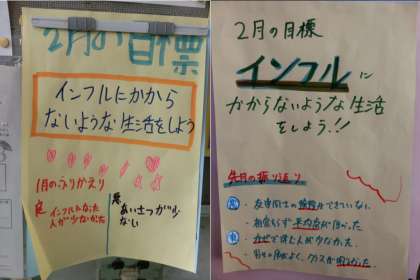 2月の目標
インフルにかから
ないような生活をしよう
1月のふりかえり
良
インフルになった
人が少なかった
悪
あいさつが少
ない
2月の目標
インフルに
かからないような生活
をしよう!!
先月の振り返り
・友達同士の
できていない
・相変らず
・かぜで休む人が少なかった